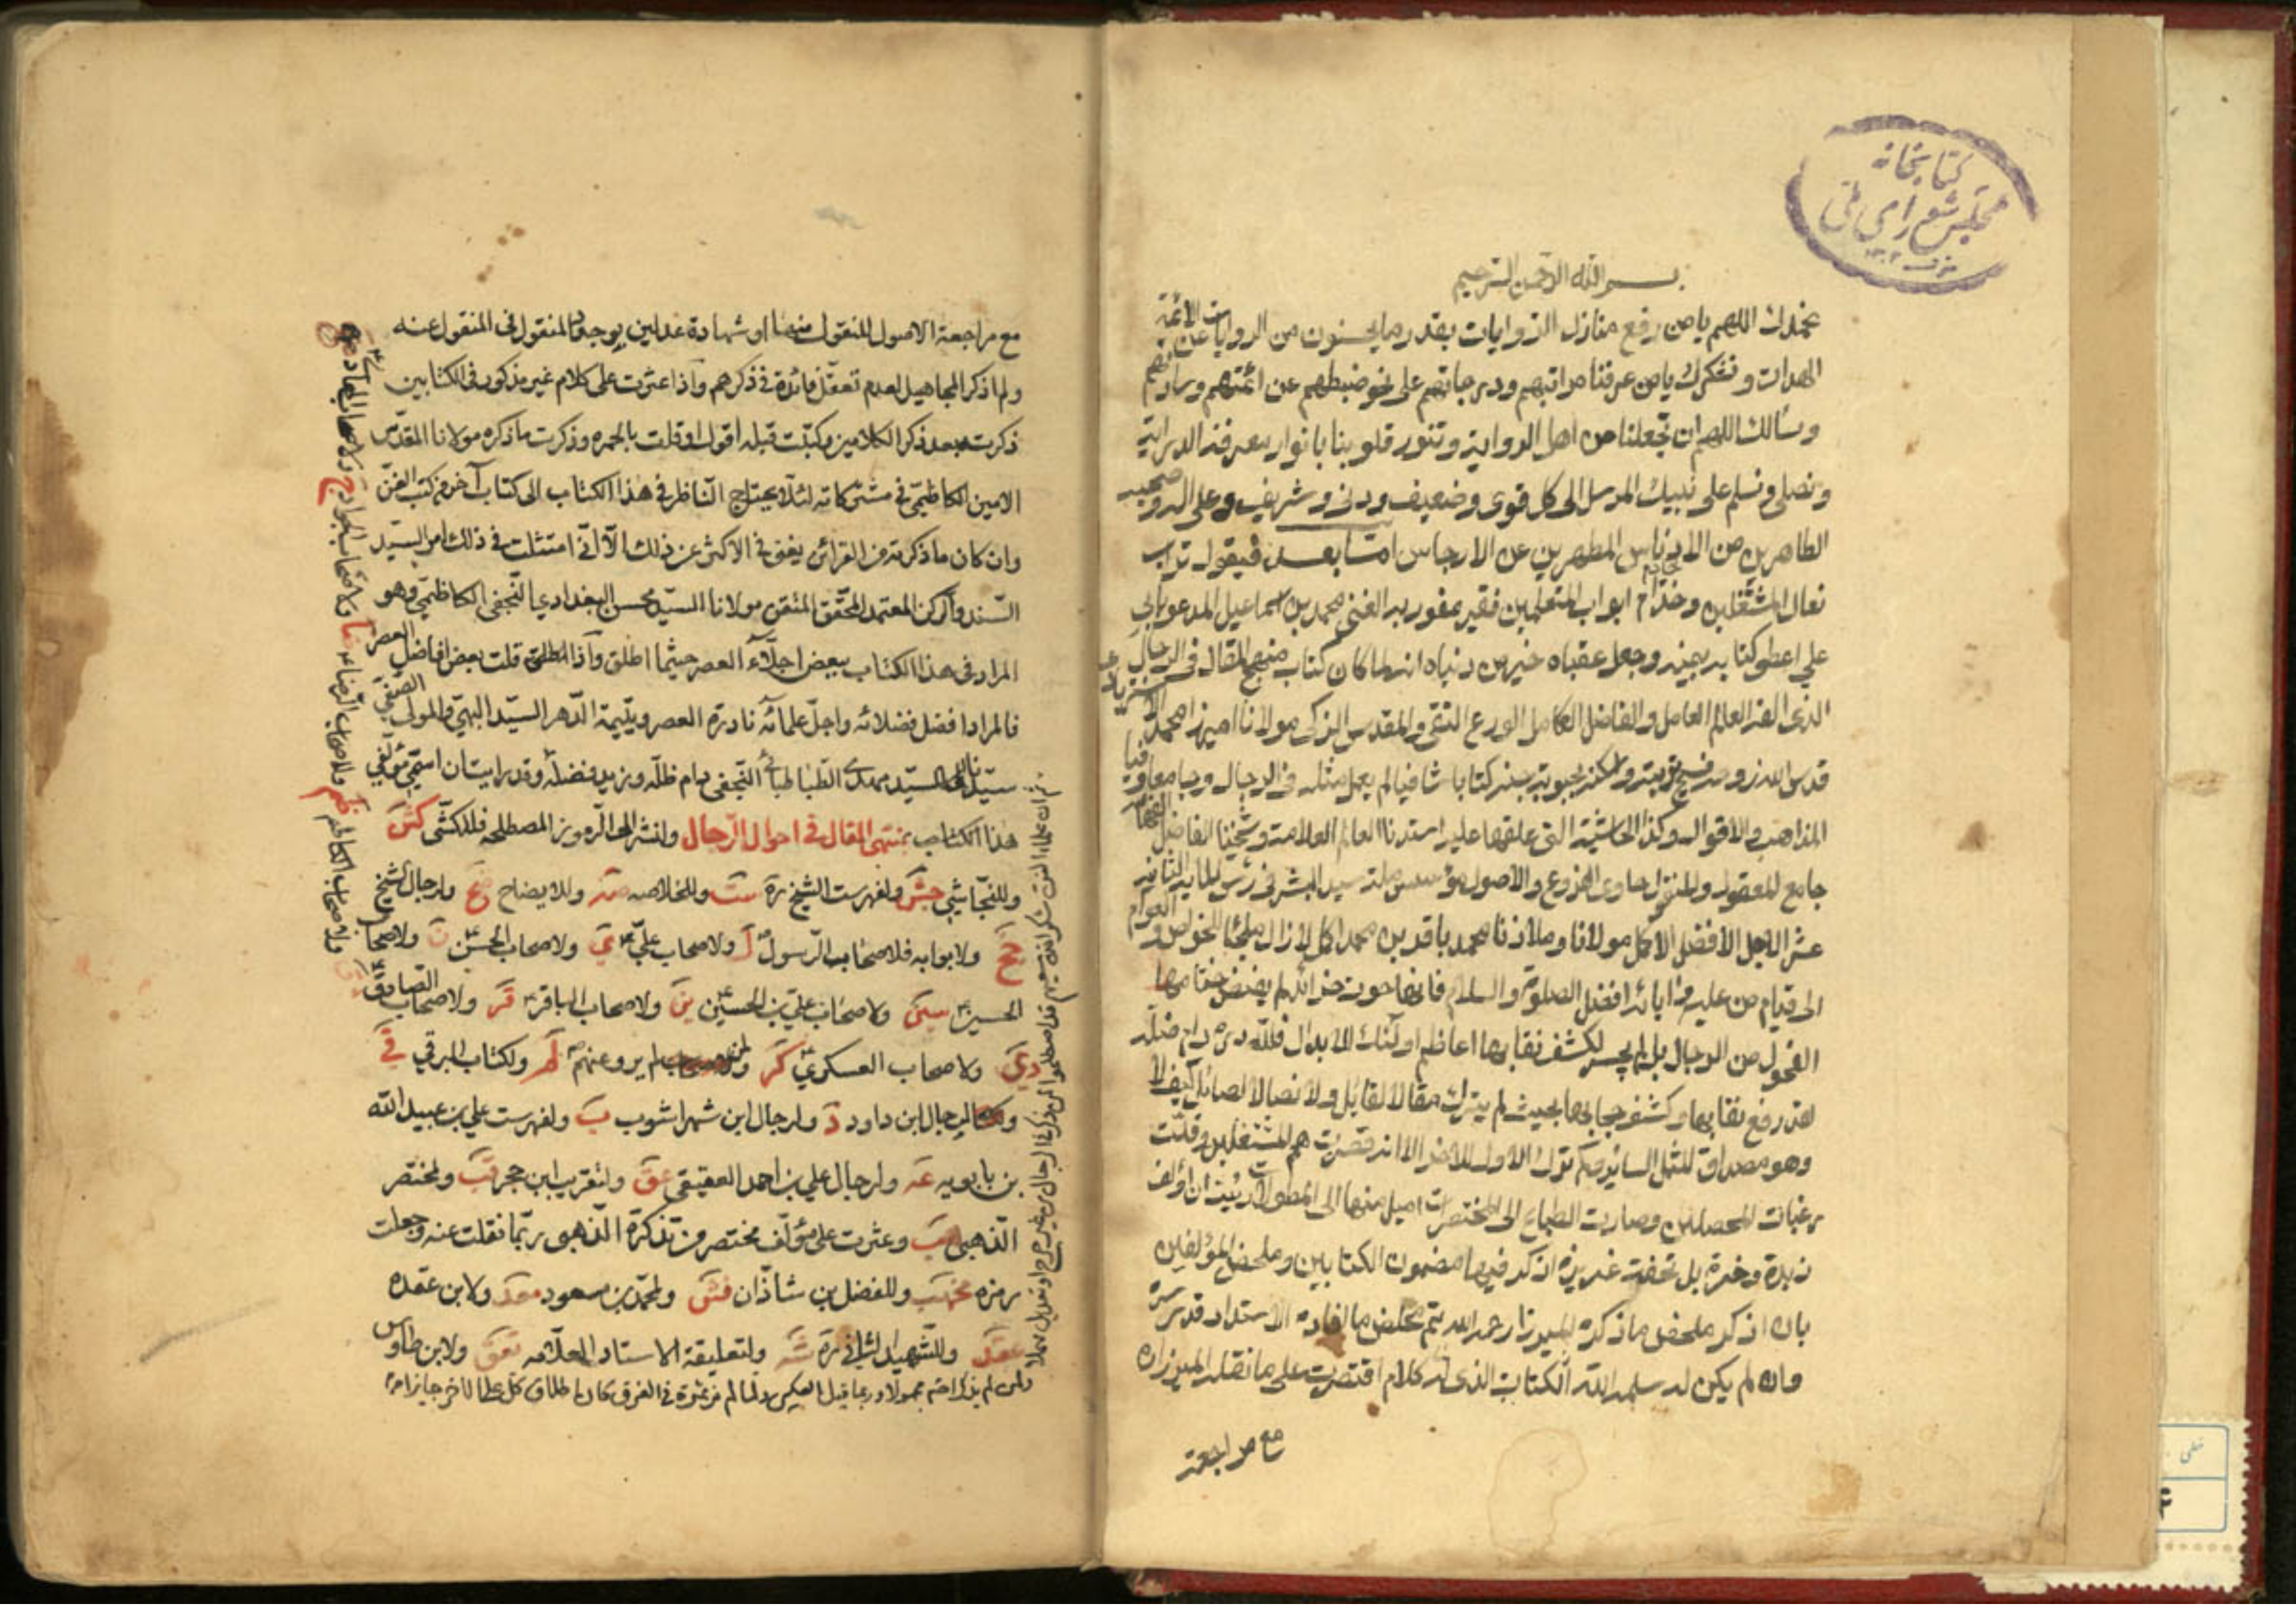 كتابخانه
مجلس شورای ملی
بسم الله الرحمن الرحيم
نحمدك اللهم يا من رفع منازل الروايات بقدر ما يحسنون من الروايات عن الائمة
الهداة ونشكرك يا من عرفنا مراتبهم ودرجاتهم على نحو ضبطهم عن ائمتهم وساداتهم
ونسألك اللهم ان تجعلنا من اهل الرواية وتنور قلوبنا بانوار معرفة الدراية
ونصلى ونسلم على نبيك المرسل الى كل قوى وضعيف ودنى وشريف وعلى اله وصحبه
الطاهرين من الادناس المطهرين عن الارجاس اما بعد فيقول تراب
نعال المشتغلين وخدام ابواب المتعلمين فقير عفو ربه الغنى محمد بن اسماعيل المدعو بابى
على اعطى كتابه بيمينه وجعل عقباه خير من دنياه انه لما كان كتاب منهج المقال فى الرجال
الذى الفه العالم العامل والفاضل الكامل الورع التقى والمقدس الزكى مولانا اميرزا محمد الاسترابادى
قدس الله روحه وفسح تربته واسكنه بحبوبة جنته كتابا شافيا لم يعمل مثله فى الرجال وجامعا وافيا
المذاهب والاقوال وكذا الحاشية التى علقها عليه استادنا العالم العلامة وشيخنا الفاضل الفهامة
جامع المعقول والمنقول حاوى الفروع والاصول مؤسس ملة سيد البشر فى رأس المائة الثانية
عشر الاجل الافضل الاكمل مولانا وملاذنا محمد باقر بن محمد اكمل لا زال ملجئا للخواص والعوام
الى قيام من عليه وابائه افضل الصلوة والسلام فانها حوت خزائن لم يفضض ختامها
الفحول من الرجال بل لم يجسر لكشف نقابها اعاظم اولئك الابدال فلله دره دام ظله
لقد رفع نقابها وكشف حجابها بحيث لم يترك مقالا لقائل ولا نصالا لصائل كيف لا
وهو مصداق للمثل السائر كم ترك الاول للاخر الا انه قصرت همم المشتغلين وقلت
رغبات المحصلين وصارت الطباع الى المختصرات اميل منها الى المطولات رئيت ان اؤلف
زبدة وخيرة بل تحفة عزيزة اذكر فيها مضمون الكتابين وملخص المؤلفين
بان اذكر ملخص ما ذكره الميرزا رحمه الله ثم ملخص ما افاده الاستاد قدس سره
وان لم يكن له سلمه الله الكتاب الذى له كلام اقتصرت على ما نقله الميرزا ره
مع مراجعة
مع مراجعة الاصول المنقول منها او شهادة عدلين بوجود المنقول فى المنقول عنه
ولم اذكر المجاهيل لعدم تعقل فائدة فى ذكرهم واذا عثرت على كلام غير مذكور فى الكتابين
ذكرته بعد ذكر الكلامين وكتبت قبله اقول او قلت بالحمره وذكرت ما ذكره مولانا المقدس
الامين الكاظمى فى مشتركاته لئلا يحتاج الناظر فى هذا الكتاب الى كتاب آخر من كتب الفن
وان كان ما ذكرته من القرائن يغنى فى الاكثر عن ذلك الا انى امتثلت فى ذلك امر السيد
السند والركن المعتمد المحقق المتقن مولانا السيد محسن البغدادى النجفى الكاظمى وهو
المراد فى هذا الكتاب ببعض اجلاء العصر حيثما اطلق واذا اطلق قلت بعض افاضل العصر
فالمراد افضل فضلائه واجل علمائه نادرة العصر ويتيمة الدهر السيد البهى والمولى الصفى
سيدنا السيد مهدى الطباطبائى النجفى دام ظله وزيد فضله وقد رايت ان اسمى مؤلفى
هذا الكتاب بمنتهى المقال فى احوال الرجال ولنشر الى الرموز المصطلحه فللكشى كش
وللنجاشى جش ولفهرست الشيخ ره ست وللخلاصه صه وللايضاح ضح ولرجال الشيخ
جخ ولابوابه فلاصحاب الرسول ل ولاصحاب على ى ولاصحاب الحسن ن ولاصحاب
الحسين سين ولاصحاب على بن الحسين ين ولاصحاب الباقر قر ولاصحاب الصادق
دى ولاصحاب العسكرى كر ولمن لم يرو عنهم لم ولكتاب البرقى قى
ولرجال ابن داود د ولرجال ابن شهراشوب ب ولفهرست على بن عبيد الله
بن بابويه عه ولرجال على بن احمد العقيقى عق ولتقريب ابن حجر قب ولمختصر
الذهبى هب وعثرت على مؤلف مختصر من تذكرة الذهبى ربما نقلت عنه وجعلت
رمزه مخهب وللفضل بن شاذان فش ولمحمد بن مسعود معد ولابن عقده
عقد وللشهيد الثانى ره شه ولتعليقة الاستاد العلامه تعق ولابن طاوس